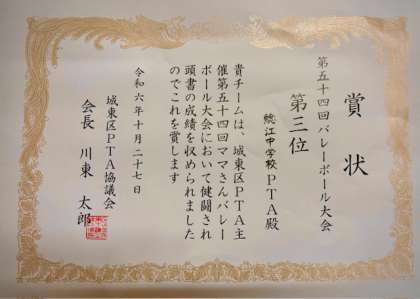 賞状
第五十四回バレーボール大会
第三位
鯰江中学校PTA殿
貴チームは、城東区PTA主
催第五十四回ママさんバレー
ボール大会において健闘され
頭書の成績を収められました
のでこれを賞します
令和六年十月二十七日
城東区PTA協議会
会長 川東 太郎